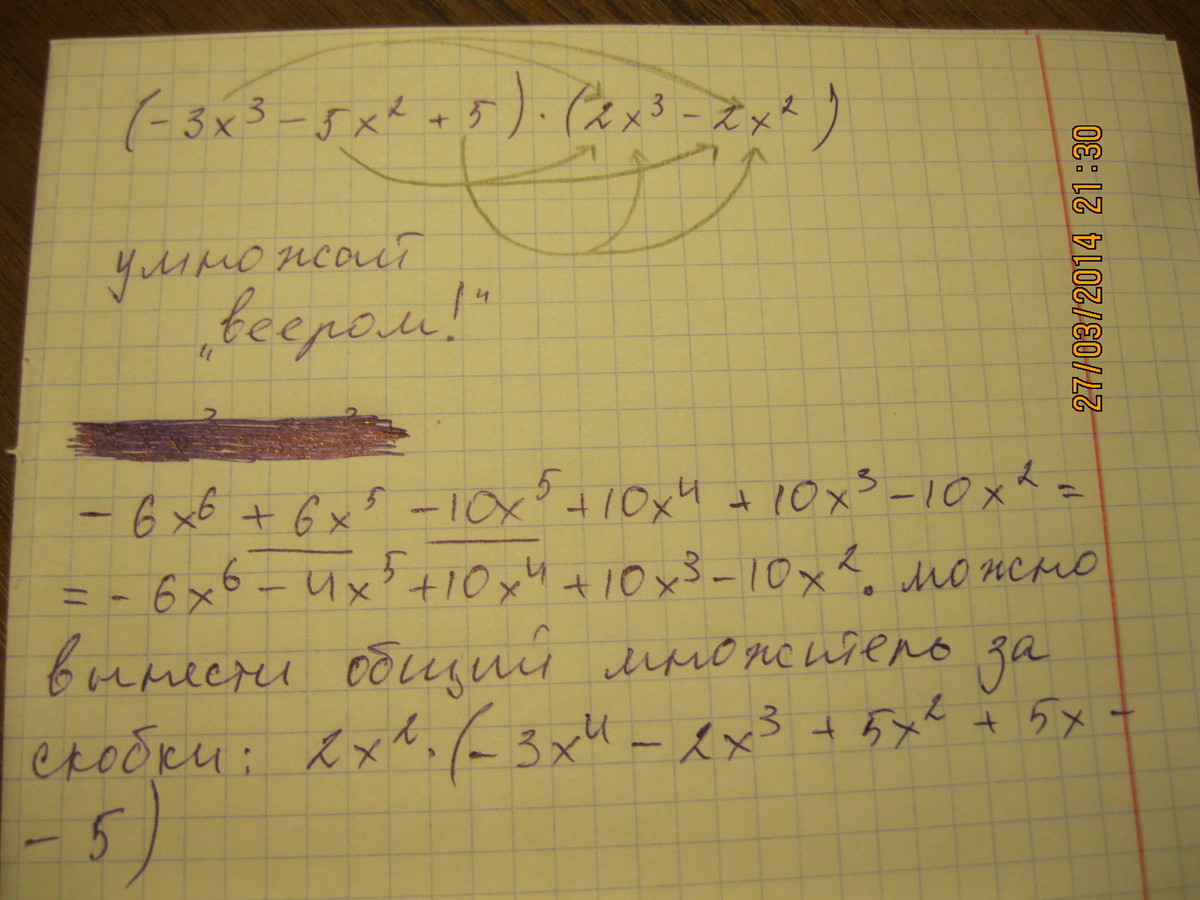 (-3x³ - 5x² + 5) · (2x³ - 2x²)
умножай
„веером!“
- 6x⁶ + 6x⁵ - 10x⁵ + 10x⁴ + 10x³ - 10x² =
= - 6x⁶ - 4x⁵ + 10x⁴ + 10x³ - 10x². можно
вынести общий множитель за
скобки: 2x² · (- 3x⁴ - 2x³ + 5x² + 5x -
- 5)
27/03/2014 21:30